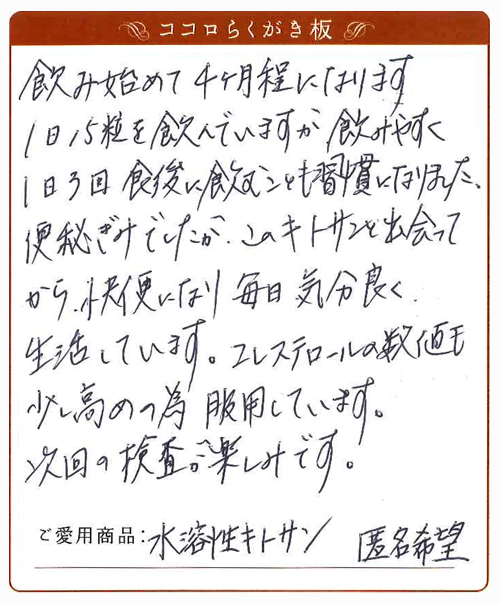 ココロらくがき板
飲み始めて4ヶ月程になります
1日15粒を飲んでいますが飲みやすく
1日3回食後に飲むことも習慣になりました、
便秘ぎみでしたが、このキトサンと出会って
から、快便になり毎日気分良く、
生活しています。コレステロールの数値も
少し高めの為服用しています。
次回の検査が楽しみです。
ご愛用商品:水溶性キトサン 匿名希望